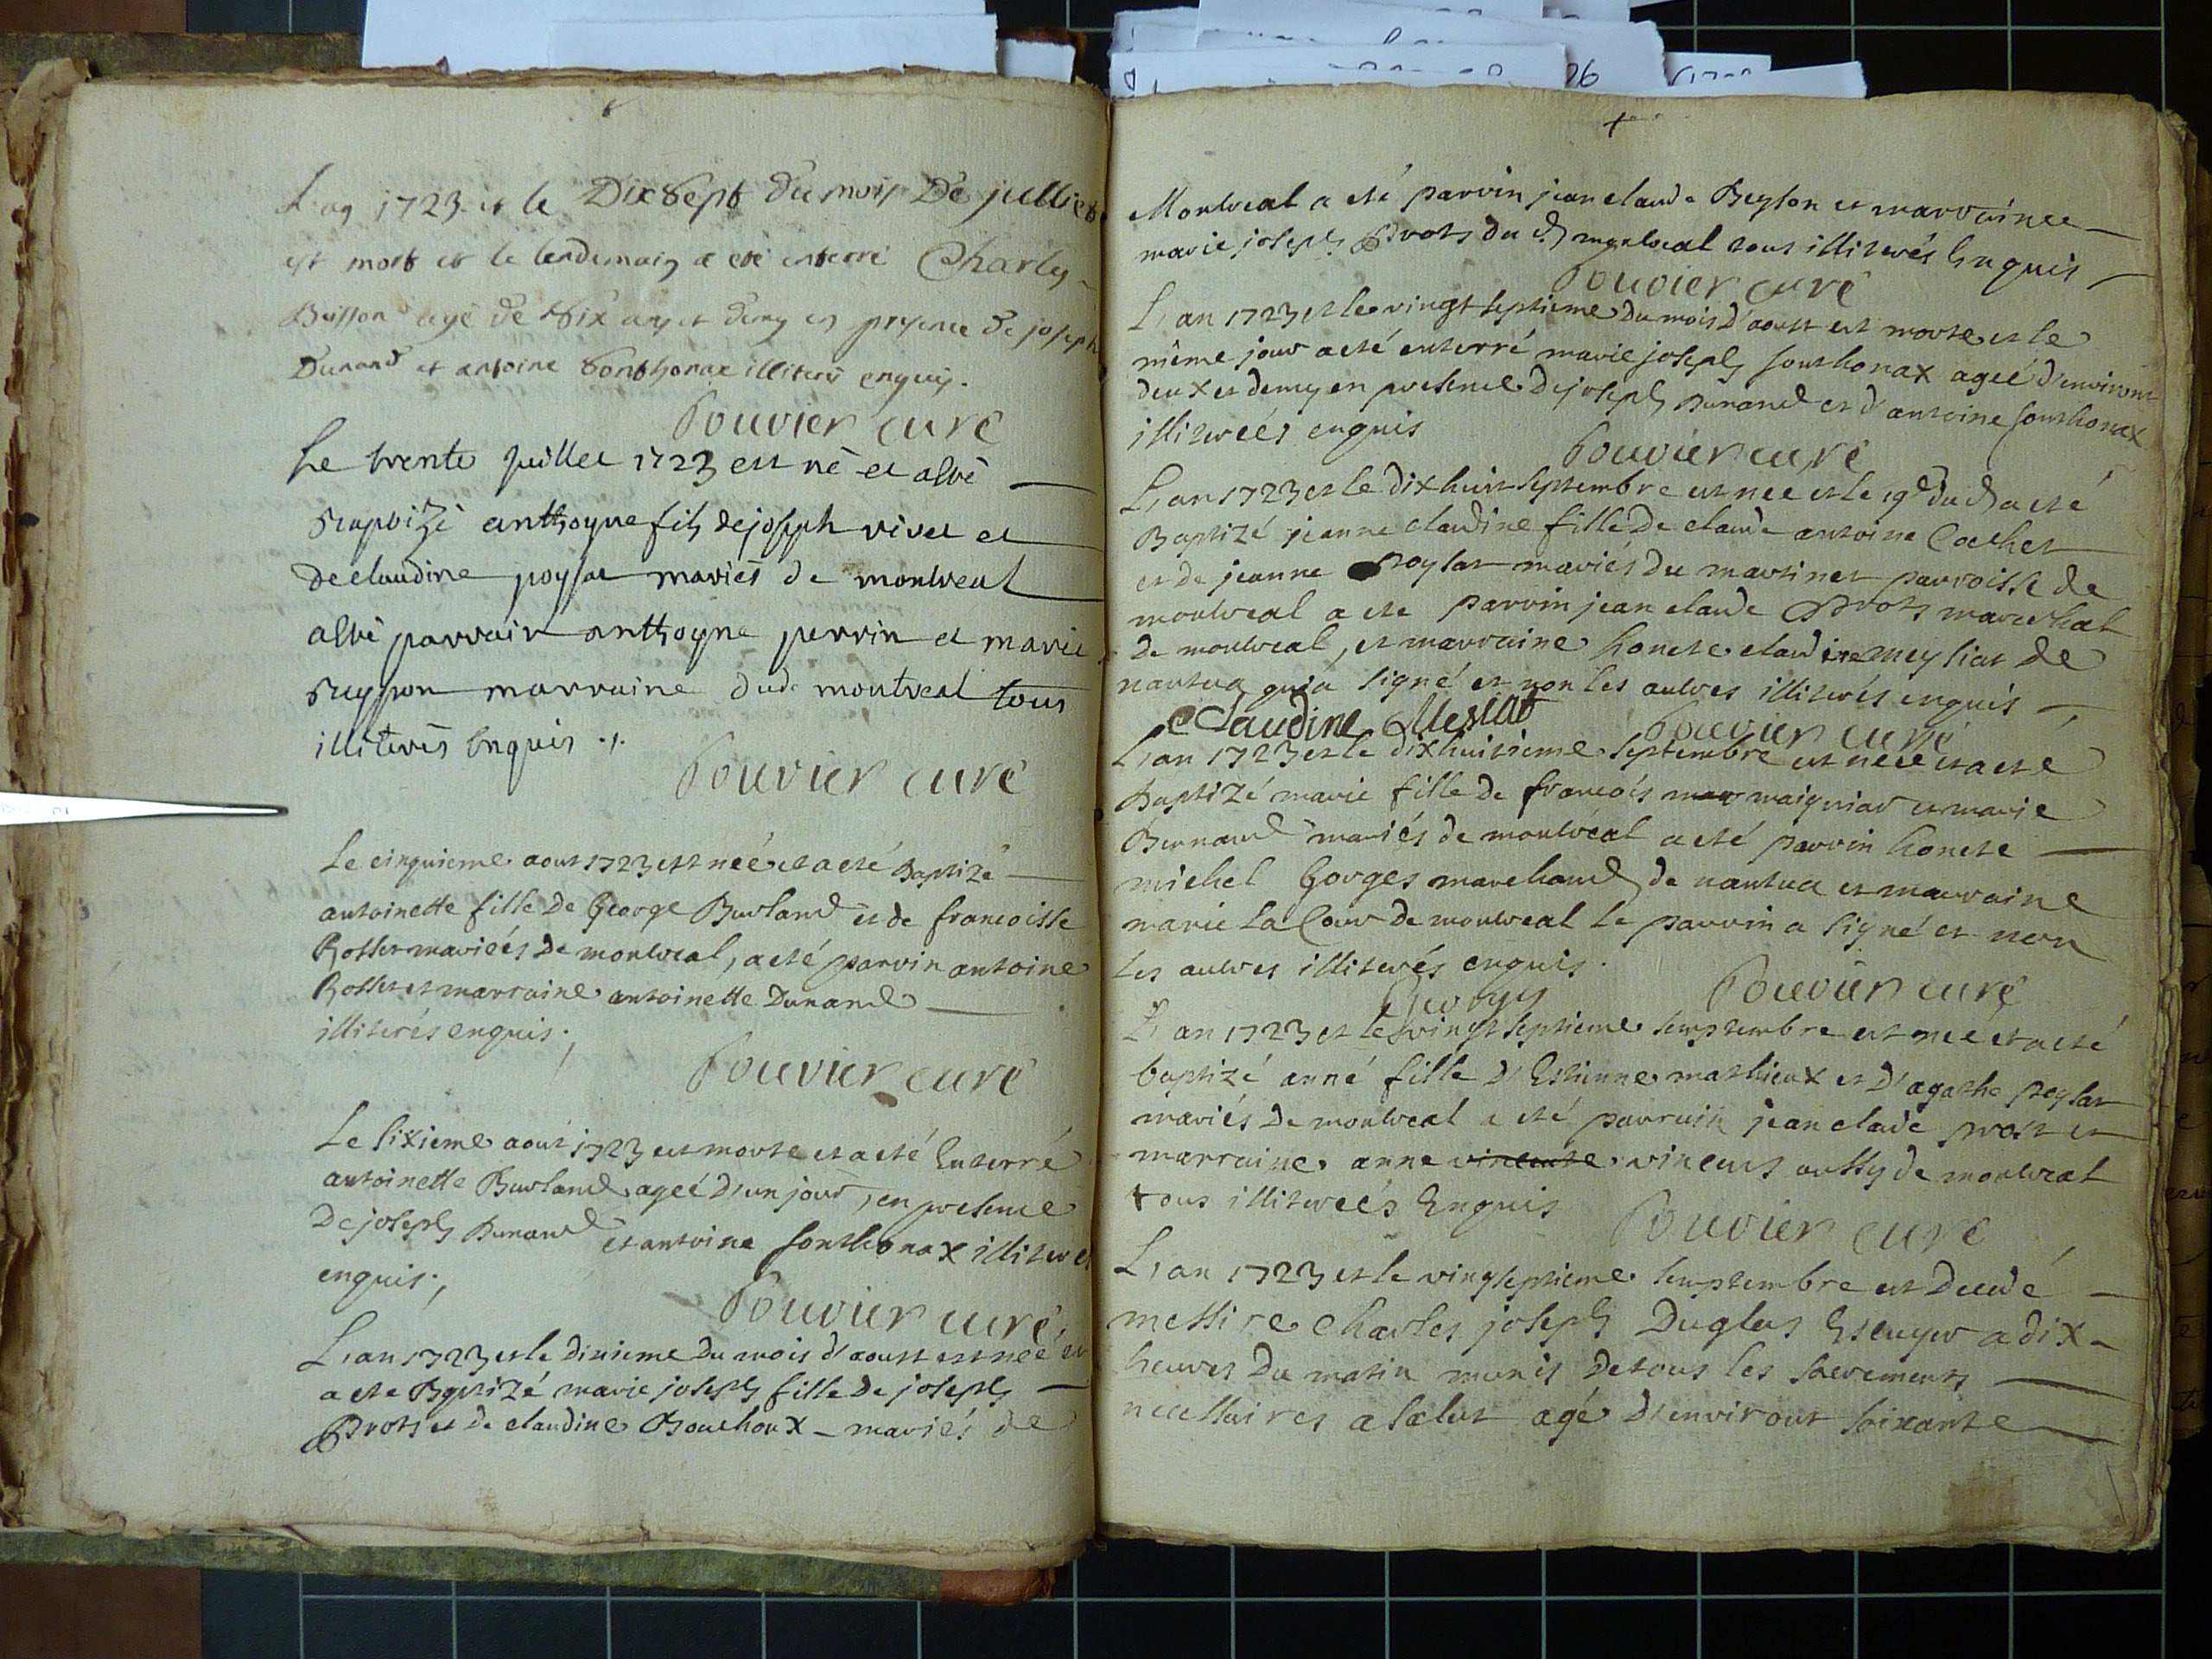 L'an 1723 et le Dix sept du mois De julliet
est mort et le lendemain a eté enterré Charles
Buisson agé de dix ans et demy en presence de joseph
Dunand et antoine Sonthonax illiteré enquis.
Pouvier curé
Le trente juillet 1723 est né et a esté
baptizé anthoyne fils de joseph vivet et
de claudine poysat mariés de montreal
a esté parrain anthoyne perrin et marie
buysson marraine dud. montreal tous
illiterés Enquis
Pouvier curé
Le cinquieme aout 1723 est née et a eté Baptizé
antoinette fille De George Burland et de francoisse
Rosset mariées De montreal, a eté parrin antoine
Rosset et marraine antoinette Dunand
illiterés enquis
Pouvier curé
Le sixieme aout 1723 est morte et a eté Enterré
antoinette Burland ageé d'un jour, en presence
De joseph Dunand et antoine sonthonax illiteré
enquis
Pouvier curé
L'an 1723 et le dixieme Du mois d'aoust est neé et
a ete Baptizé marie joseph fille de joseph
Prots et de claudine Bouchoux mariés de
Montreal a eté parrin jean claude Beyson et marrainee
marie joseph Prots du d montreal tous illiterés Enquis
Pouvier curé
L'an 1723 et le vingt septieme Du mois D'aoust est morte et le
même jour a eté enterré marie joseph sonthonax ageé d'environt
deux et demy en presence De joseph Dunand et d'antoine sonthonax
illitereés enquis
Pouvier curé
L'an 1723 et le dixhuit septembre est nee et le 19e du d a eté
Baptizé jeanne claudine fille De claude antoine Cochet
et de jeanne poysat mariés du martinet parroisse de
montreal a ete parrin jean claude Prots marechal
de montreal, et marraine honete claudine meysiat de
nantua qui a signé et non les autres illiterés enquis
Claudine Mesiat
Pouvier curé
L'an 1723 et le dixhuitieme septembre est neee et a eté
Baptizé marie fille de francois maigniar et marie
Bernand mariés de montreal a eté parrin honete
michel Gorges marchand de nantua et marraine
marie la Cour de montreal le parrin a signé et non
les autres illiterés enquis.
Gorges
Pouvier curé
L'an 1723 et le vingt septieme semptembre est nee et a eté
baptizé anné fille d'Estienne mathieux et D'agathe poysat
mariés De montreal a eté parrain jean clade prost et
marraine anne vincent aussy de montreal
tous illitereés Enquis
Pouvier curé
L'an 1723 et le vingtseptieme semptembre est Decedé
messire Charles joseph Duglas Escuyer a dix
heures Du matin munis de tous les sacrements
necessaires a salut agé d'environt soixante